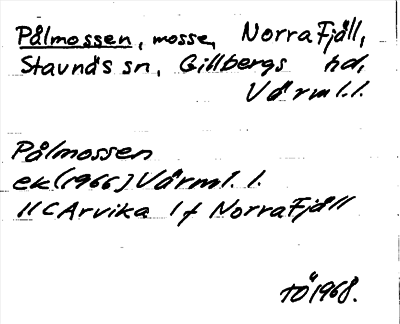 Pålmossen, mosse, Norra Fjäll,
Stavnäs sn, Gillbergs hd,
Värml.l.
Pålmossen
ek (1966) Värml. l.
11C Arvika 1f Norra Fjäll
TÖ 1968.